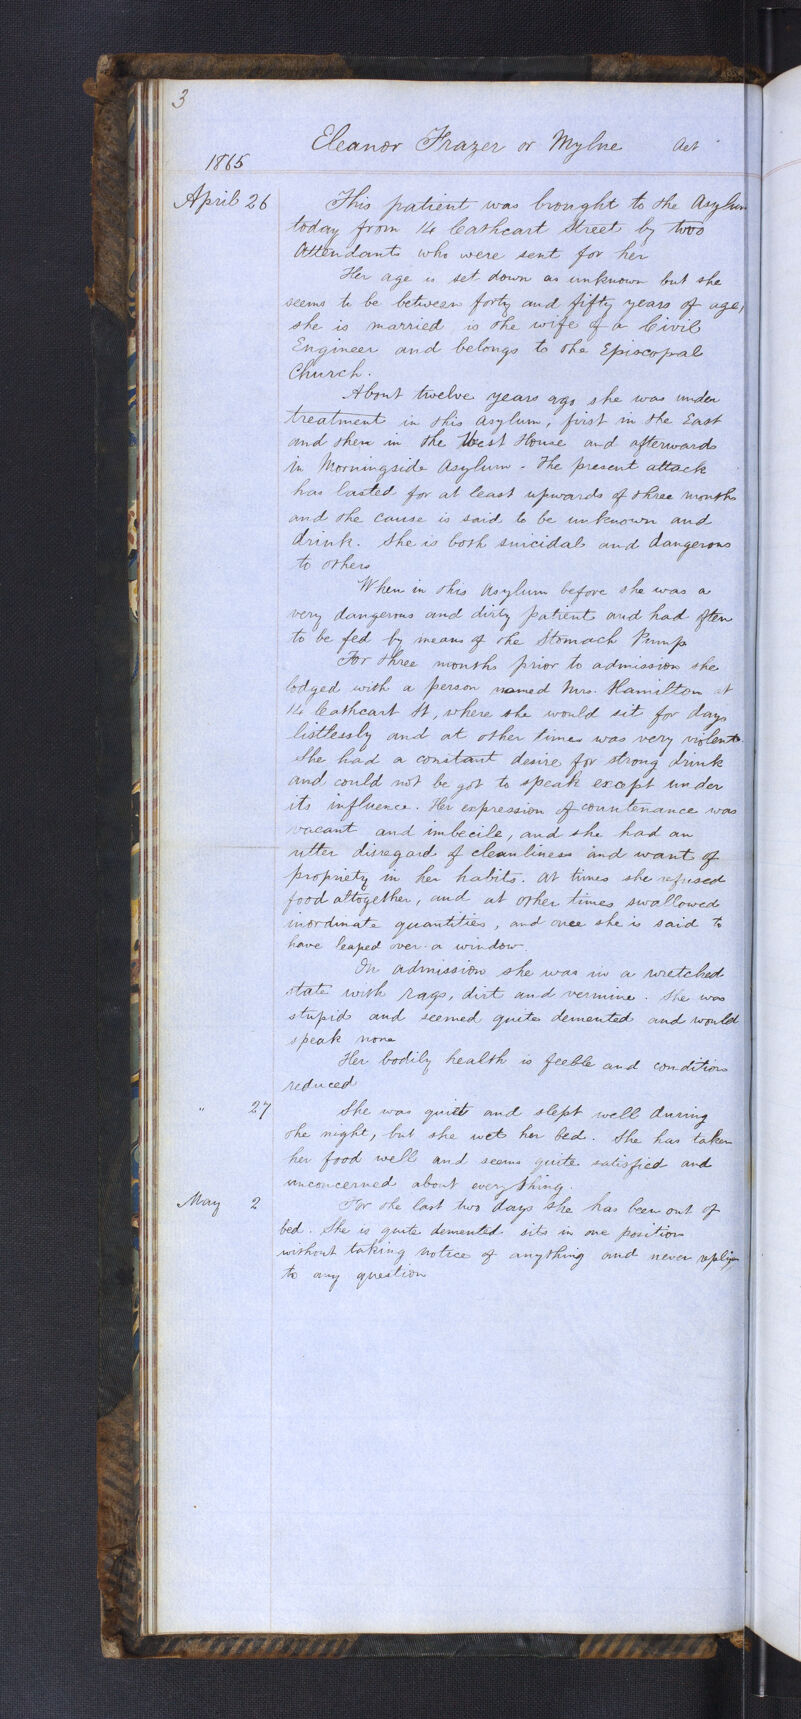 3
Eleanor Frazer or Mylne Aet
1865
April 26 This patient was brought to the Asylum
today from 14 Cathcart Street by two
Attendants who were sent for her
Her age is set down as unknown but she
seems to be between forty and fifty years of age,
she is married is the wife of a Civil
Engineer and belongs to the Episcopal
Church.
About twelve years ago she was under
treatment in this Asylum, first in the East
and then in the West House and afterwards
in Morningside Asylum - The present attack
has lasted for at least upwards of three months
and the cause is said to be unknown and
drink. She is both suicidal and dangerous
to others
When in this Asylum before she was a
very dangerous and dirty patient and had often
to be fed by means of the Stomach Pump
For three months prior to admission she
lodged with a person named Mrs. Hamilton at
14 Cathcart St, where she would sit for days
listlessly and at other times was very violent.
She had a constant desire for strong drink
and could not be got to speak except under
its influence. Her expression of countenance was
vacant and imbecile, and she had an
utter disregard of cleanliness and want of
propriety in her habits. At times she refused
food altogether, and at other times swallowed
inordinate quantities, and once she is said to
have leaped over a window.
On admission she was in a wretched
state with rags, dirt and vermine. She was
stupid and seemed quite demented and would
speak none
Her bodily health is feeble and condition
reduced
" 27 She was quiet and slept well during
the night, but she wet her bed. She has taken
her food well and seems quite satisfied and
unconcerned about everything.
May 2 For the last two days she has been out of
bed. She is quite demented sits in one position
without taking notice of anything and never replys
to any question